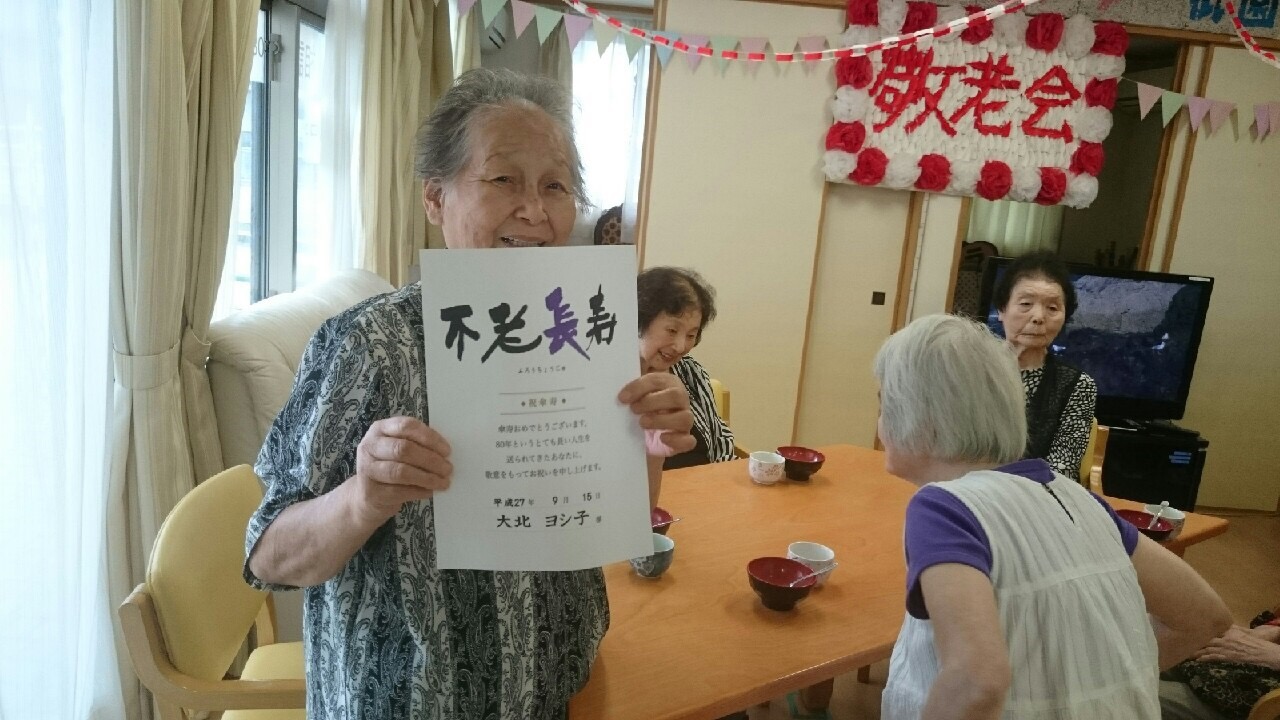 敬老会
不老長寿
ふろうちょうじゅ
祝傘寿
傘寿おめでとうございます。
80年というとても長い人生を
送られてきたあなたに、
敬意をもってお祝いを申し上げます。
平成27年 9月 15日
大北 ヨシ子 様